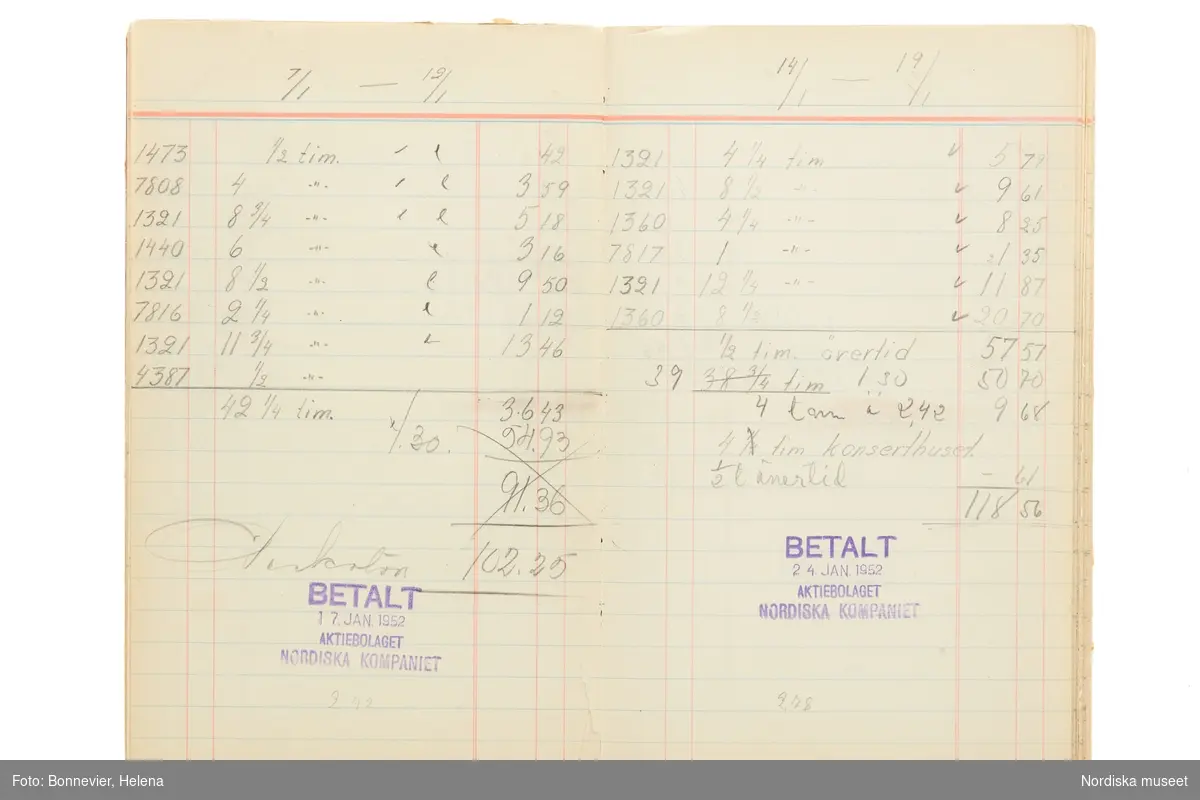 7/1 — 12/1
1473 1/2 tim. 42
7808 4 -"- 3 59
1321 8 3/4 -"- 5 18
1440 6 -"- 3 16
1321 8 1/2 -"- 9 50
7816 2 1/4 -"- 1 12
1321 11 3/4 -"- 13 46
4387 1/2 -"-
42 1/4 tim. 36 43
1.30. 54.93
91.36
102.25
BETALT
17. JAN. 1952
AKTIEBOLAGET
NORDISKA KOMPANIET
14/1 — 19/1
1321 4 1/4 tim ✓ 5 79
1321 8 1/2 -"- ✓ 9 61
1360 4 1/4 -"- ✓ 8 25
7817 1 -"- ✓ 1 35
1321 12 1/4 -"- ✓ 11 87
1360 8 1/2 ✓ 20 70
1/2 tim. övertid 57 57
39 38 3/4 tim 1.30 50 70
4 tim à 2,42 9 68
4 tim konserthuset
1/2 t övertid – 61
118 56
BETALT
24. JAN. 1952
AKTIEBOLAGET
NORDISKA KOMPANIET
Foto: Bonnevier, Helena
Nordiska museet